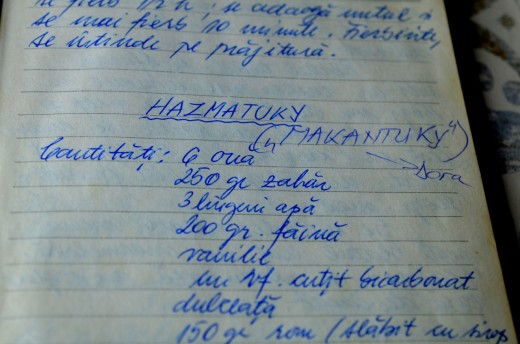 se fierb 1/2 h; se adaogă untul și
se mai fierb 10 minute. Fierbinte,
se întinde pe prăjitură.
HAZMATUKY
("MAKANTUKY")
Dora
Cantități: 6 ouă
250 gr zahăr
3 linguri apă
200 gr. făină
vanilie
un vf. cuțit bicarbonat
dulceață
150 gr rom (slăbit cu sirop